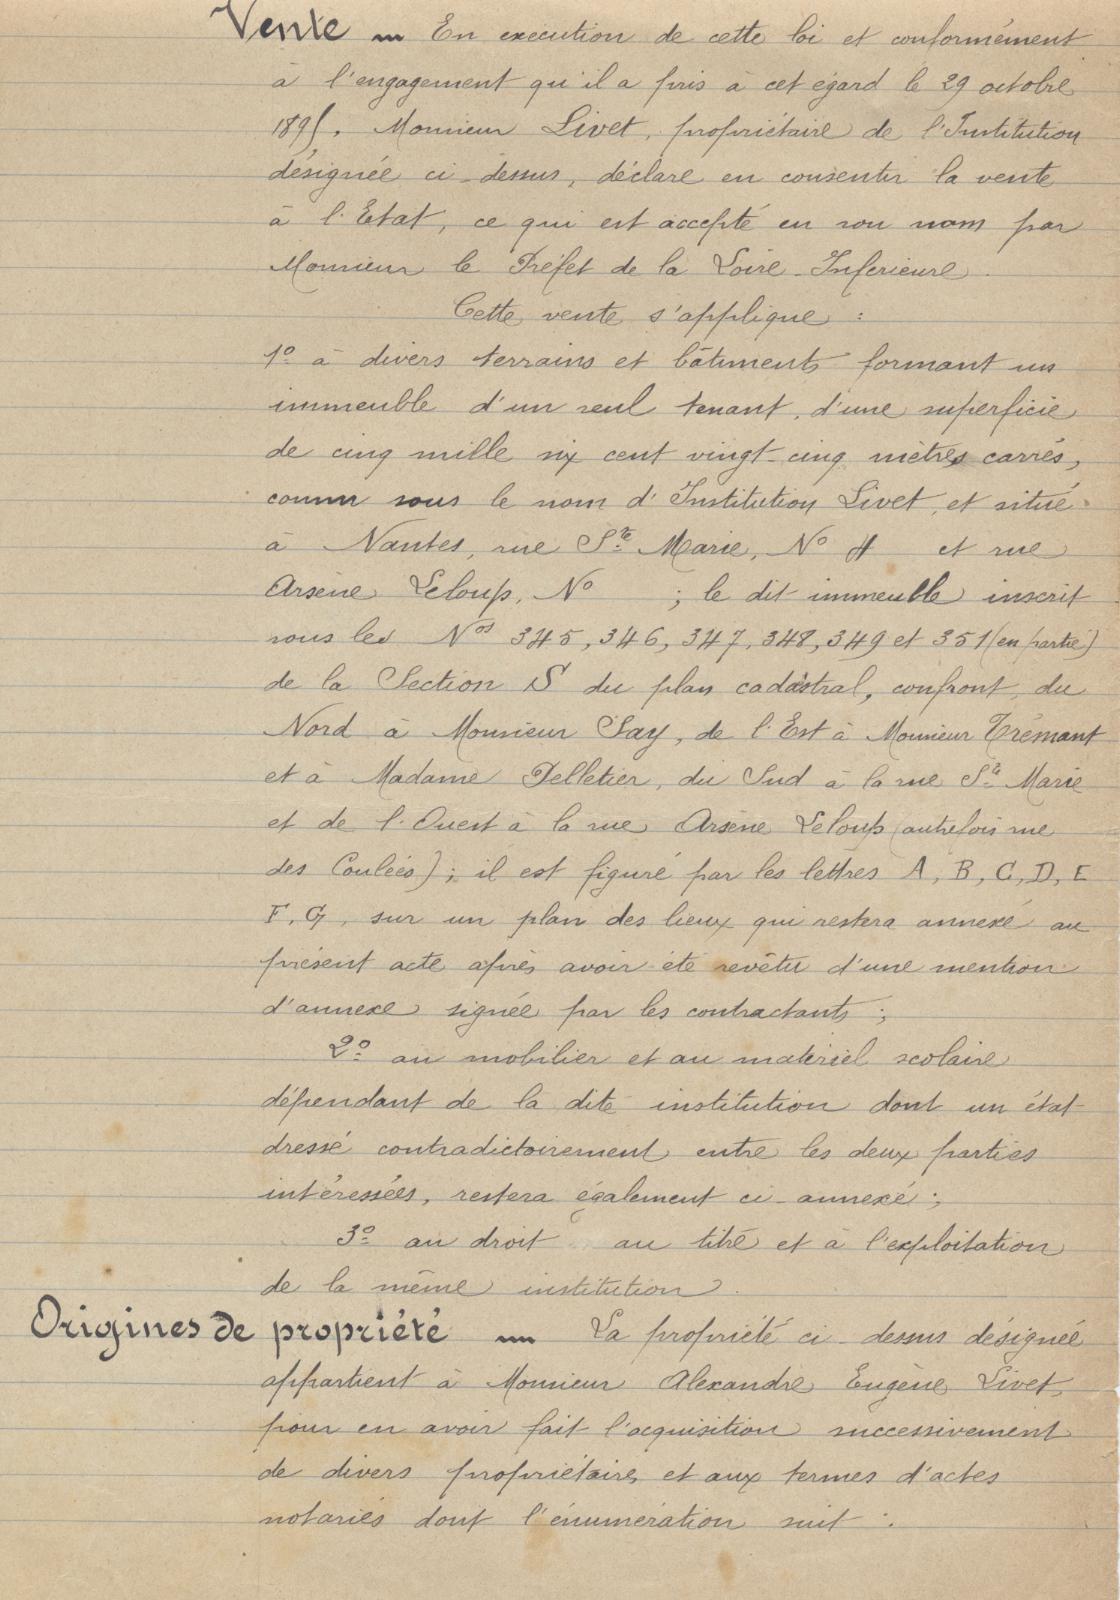 Vente ~ En execution de cette loi et conformément
à l'engagement qu'il a pris à cet égard le 29 octobre
1895, Monsieur Livet, propriétaire de l'Institution
désignée ci-dessus, déclare en consentir la vente
à l'Etat, ce qui est accepté en son nom par
Monsieur le Préfet de la Loire-Inferieure.
Cette vente s'applique :
1º à divers terrains et bâtiments formant un
immeuble d'un seul tenant, d'une superficie
de cinq mille six cent vingt-cinq mètres carrés,
connu sous le nom d'Institution Livet, et situé
à Nantes, rue Ste Marie, Nº 4 et rue
Arsène Leloup, Nº ; le dit immeuble inscrit
sous les Nos 345, 346, 347, 348, 349 et 351 (en partie)
de la Section S du plan cadastral, confront, du
Nord à Monsieur Say, de l'Est à Monsieur Trémant
et à Madame Pelletier, du Sud à la rue Ste Marie
et de l'Ouest à la rue Arsène Leloup (autrefois rue
des Coulées) ; il est figuré par les lettres A, B, C, D, E
F, G, sur un plan des lieux qui restera annexé au
présent acte après avoir été revêtu d'une mention
d'annexe signée par les contractants ;
2º au mobilier et au matériel scolaire
dépendant de la dite institution dont un état
dressé contradictoirement entre les deux parties
intéressées, restera également ci-annexé ;
3º au droit au titre et à l'exploitation
de la même institution.
Origines de propriété ~ La propriété ci-dessus désignée
appartient à Monsieur Alexandre Eugène Livet,
pour en avoir fait l'acquisition successivement
de divers propriétaires et aux termes d'actes
notariés dont l'énumération suit :